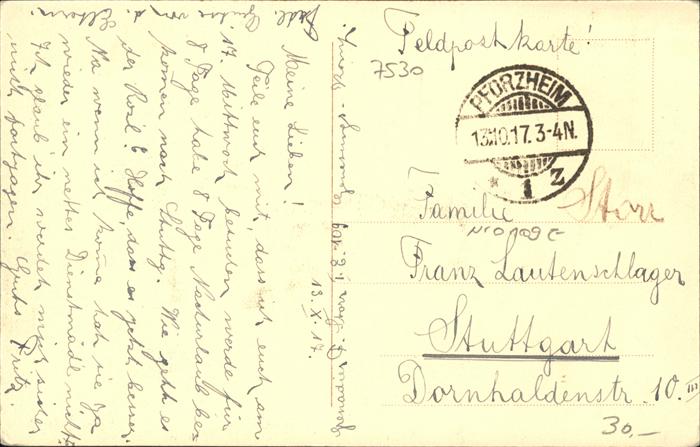 Feldpostkarte!
7530
PFORZHEIM
13.10.17. 3-4 N.
* 1 z
Familie Storr
Franz Lautenschlager
Stuttgart
Dornhaldenstr. 10. III
30.-
13. X. 17.
Meine Lieben!
Teile euch mit, dass ich euch am
17. Mittwoch besuchen werde für
8 Tage habe 8 Tage Nachurlaub be-
komen nach Stuttg. Wie geht es
der Rösl? Hoffe, dass es jetzt besser.
Na wenn ich kome hat sie ja
wieder ein nettes Dienstmädl
Ich glaub ihr werdet mich sicher
nicht fortjagen. Gruhs Fritz.
Grüsse von d. Eltern.